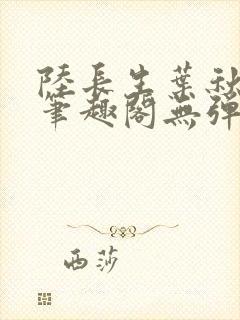 陸長生葉秋
筆趣閣無彈
西莎